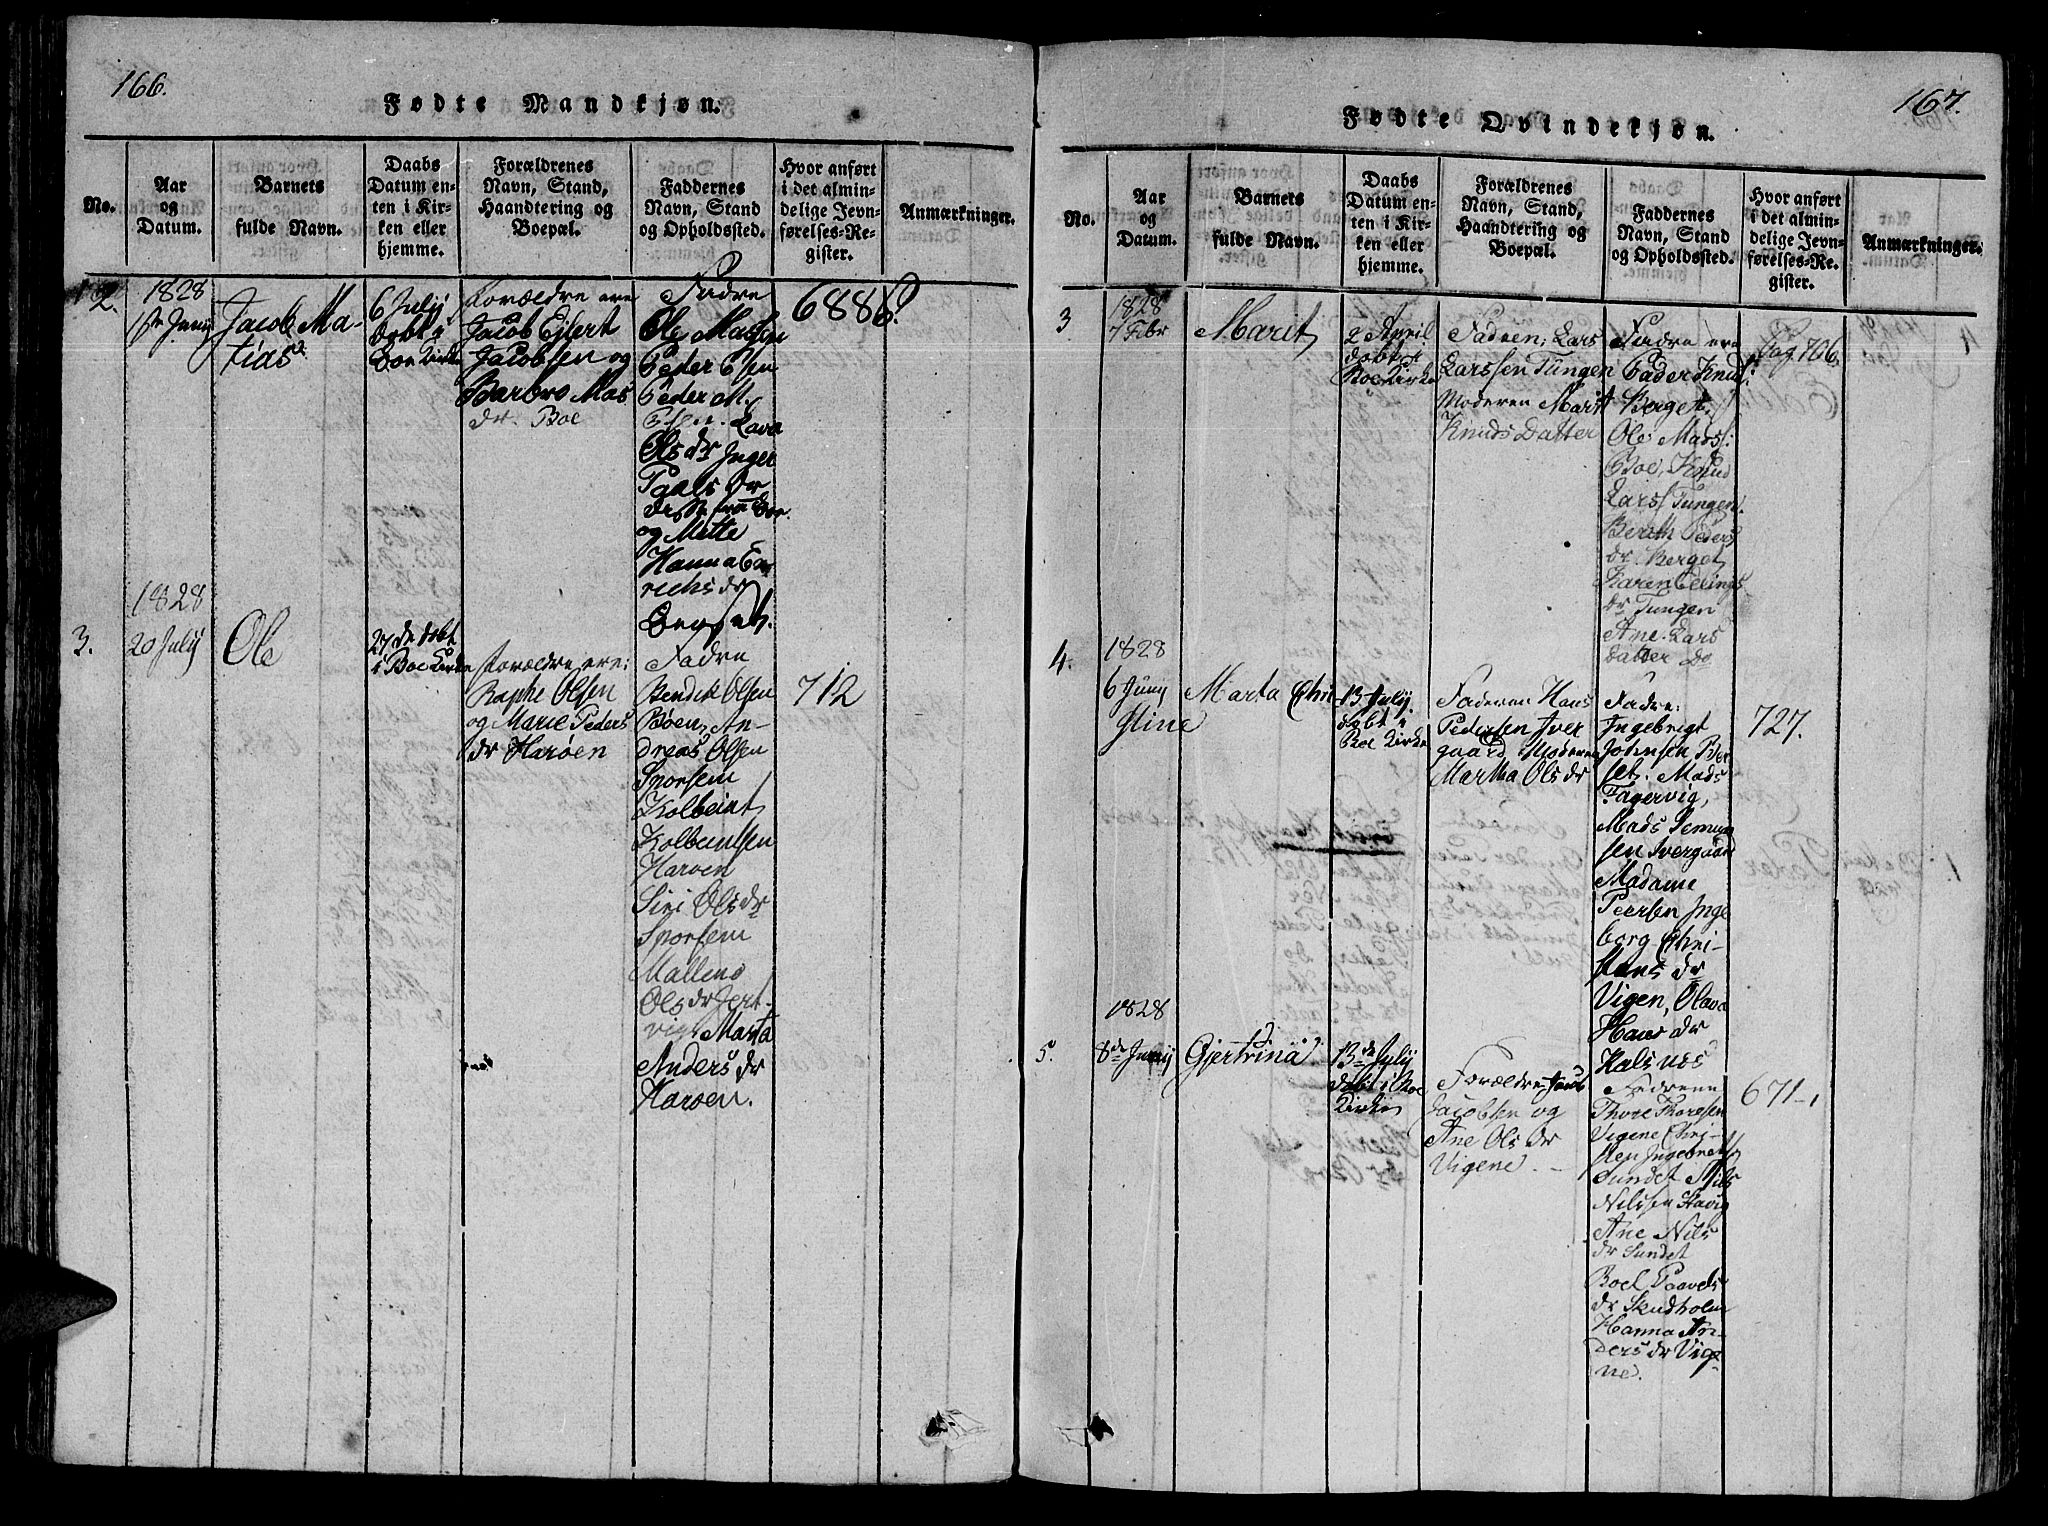 166.
Fødte Mandkjøn.
No.
Aar
og
Datum.
Barnets
fulde Navn.
Daabs
Datum en-
ten i Kir-
ken eller
hjemme.
Forældrenes
Navn, Stand,
Haandtering og
Boepæl.
Faddernes
Navn, Stand
og Opholdssted.
Hvor anført
i det almin-
delige Jevn-
førelses-Re-
gister.
Anmærkninger.
2.
1828
Jacob Ma-
tias
6 July
døbt i
Boe Kirke
Forældre ere
Jacob Ejlert
Jacobsen og
Barbro Mas
dr. Boe
Fadre
Ole Massen
Peder Olsen
Peder M.
Lava
Ols dr Inger
Paals dr
disse fra Boe
og Mette
Hanna
richs dr
Berset.
688
3.
1828
20 July
Ole
27 de døbt
i Boe Kirke
Forældre ere:
Raphe Olsen
og Marie Peders
dr Harøen
Fadre
Bendik Olsen
Bøen, An-
dreas Olsen
Sporsem
Kolbeint
Kolbeinsen
Harøen
Siri Ols dr
Sporsem
Mallene
Ols dr Jert-
vig Marta
Anders dr
Harøen.
712
167.
Fødte Qvindekjøn.
No.
Aar
og
Datum.
Barnets
fulde Navn.
Daabs
Datum en-
ten i Kir-
ken eller
hjemme.
Forældrenes
Navn, Stand,
Haandtering og
Boepæl.
Faddernes
Navn, Stand
og Opholdssted.
Hvor anført
i det almin-
delige Jevn-
førelses-Re-
gister.
Anmærkninger.
3
1828
7 Febr
Marit
2 April
døbt i
Boe Kirke
Faderen: Lars
Larssen Tungen
Moderen Marit
Knuds Datter
Fadre ere
Peder Knuds:
Berget,
Ole Mads:
Boe, Knud
Lars: Tungen.
Berith Peders
dr Berget
Karen Ellings
dr Tungen
Ane Lars
datter Do
Pag 706
4.
1828
6 Juny
Marta Chri
stine
13 July.
døbt i
Boe Kirke
Faderen Hans
Pedersen Iver
gaard Moderen
Martha Ols dr
Fadre:
Ingebrigt
Johnsen Ber
set. Mads
Fagervig,
Mads Semun
sen Ivergaard
Madame
Peersen Inge
borg Chri-
stians dr
Vigen, Olava
Hans dr
Halsnæs
727.
5.
1828
8de Juny
Gjertrina
13de July
døbt i Boe
Kirke
Forældre Jacob
Jacobsen og
Ane Ols dr
Vigene.
Fadrene
Thore Thoresen
Vigene Chri-
sten Ingebretsen
Sundet Nils
Nilssen Havig
Ane Nils
dr Sundet
Boel Paavels
dr Skudholm
Hanna An-
ders dr Vige-
ne.
671